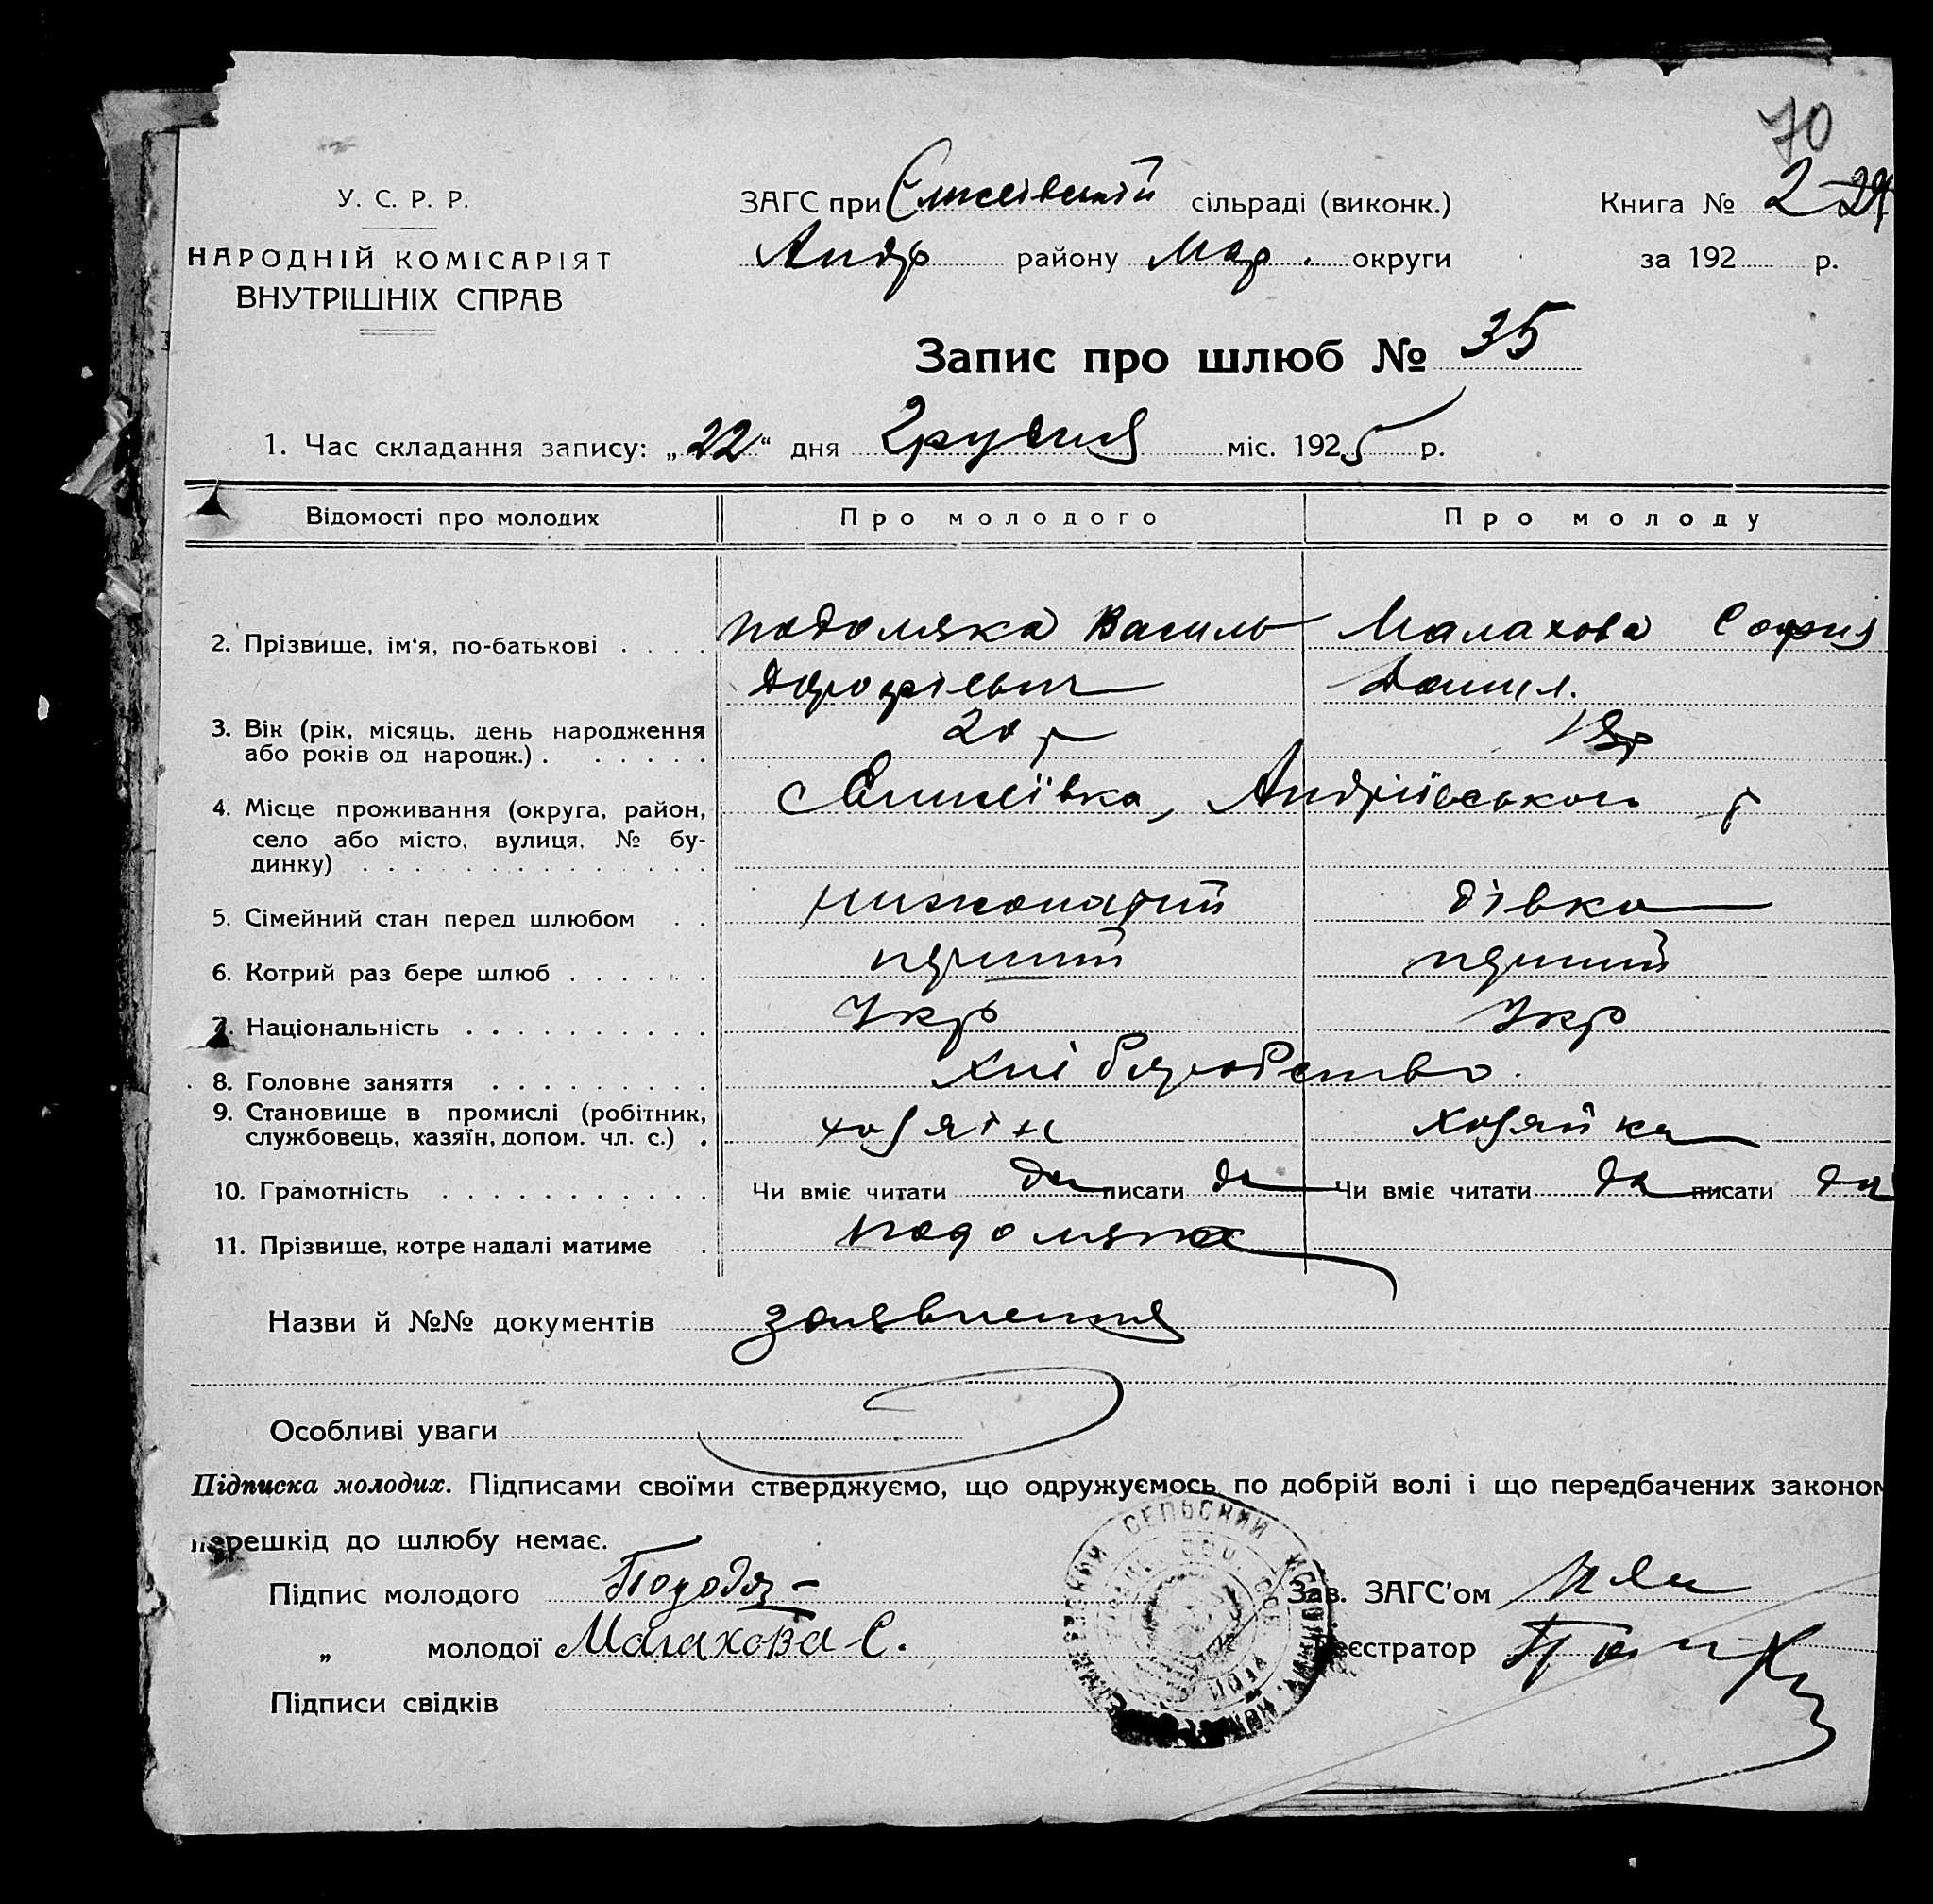 70
У. С. Р. Р.
НАРОДНІЙ КОМІСАРІЯТ
ВНУТРІШНІХ СПРАВ
ЗАГС при Єлисеівській сільраді (виконк.)
Андр району Мар. округи
Книга № 2
за 192 р.
Запис про шлюб № 35
1. Час складання запису: „22“ дня Грудня міс. 1925 р.
Відомості про молодих Про молодого Про молоду
2. Прізвище, ім‘я, по-батькові Подоляка Василь Малахова София
Дорофієвич Данил.
3. Вік (рік, місяць, день народження
або років од народж.) 20 р 18р
4. Місце проживання (округа, район,
село або місто, вулиця, № бу-
динку)
с Єлисеївка, Андріївського р
5. Сімейний стан перед шлюбом нижонатий дівка
6. Котрий раз бере шлюб перший перший
7. Національність Укр Укр
8. Головне заняття Хліборобство.
9. Становище в промислі (робітник,
службовець, хазяїн, допом. чл. с.) хозяін хозяйка
10. Грамотність Чи вміє читати да писати да Чи вміє читати да писати да
11. Прізвище, котре надалі матиме Подоляка
Назви й №№ документів заявлення
Особливі уваги
Підписка молодих. Підписами своїми стверджуємо, що одружуємось по добрій волі і що передбачених законом
перешкід до шлюбу немає.
Підпис молодого
„ молодої Малахова С.
Підписи свідків
Зав. ЗАГС’ом
Реєстратор
СЕЛЬСКИЙ